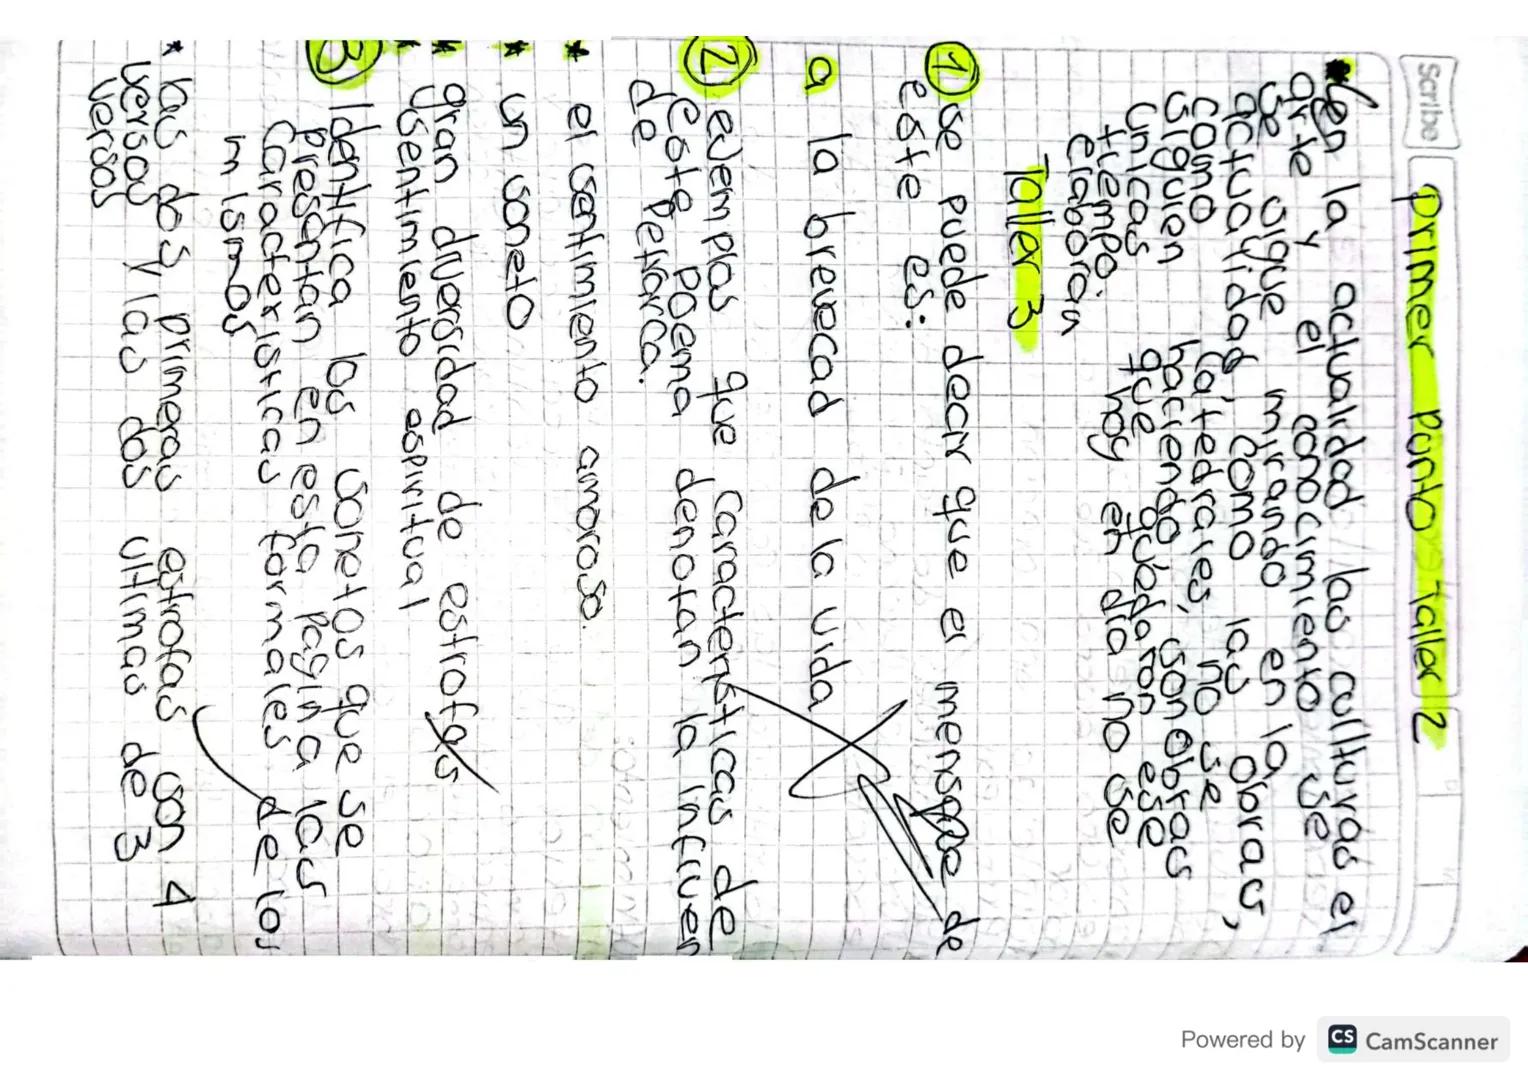 Scribe
primer punto taller 2
* en la actualidad las culturas el
arte y el conocimiento se
se sigue mirando en la
actualidad, como las obras,
como catedrales, no se
siguen haciendo, son obras
unicas que quedaron ese
tiempo. hoy en dia no se
elaboran
Taller 3
1 se puede decir que el mensaje de
este es:
a la brevedad de la vida
2 ejemplos que caracteristicas de
este poema denotan la influen
de Petrarca.
* el sentimiento amoroso.
* un soneto
* gran diversidad de estrofas
* sentimiento espiritual
3 Identifica los sonetos que se
presentan en esta pagina las
caracteristicas formales de los
mismos
* las dos primeras estrofas son 4
versos y las dos ultimas de 3
versos
Powered by CS CamScanner